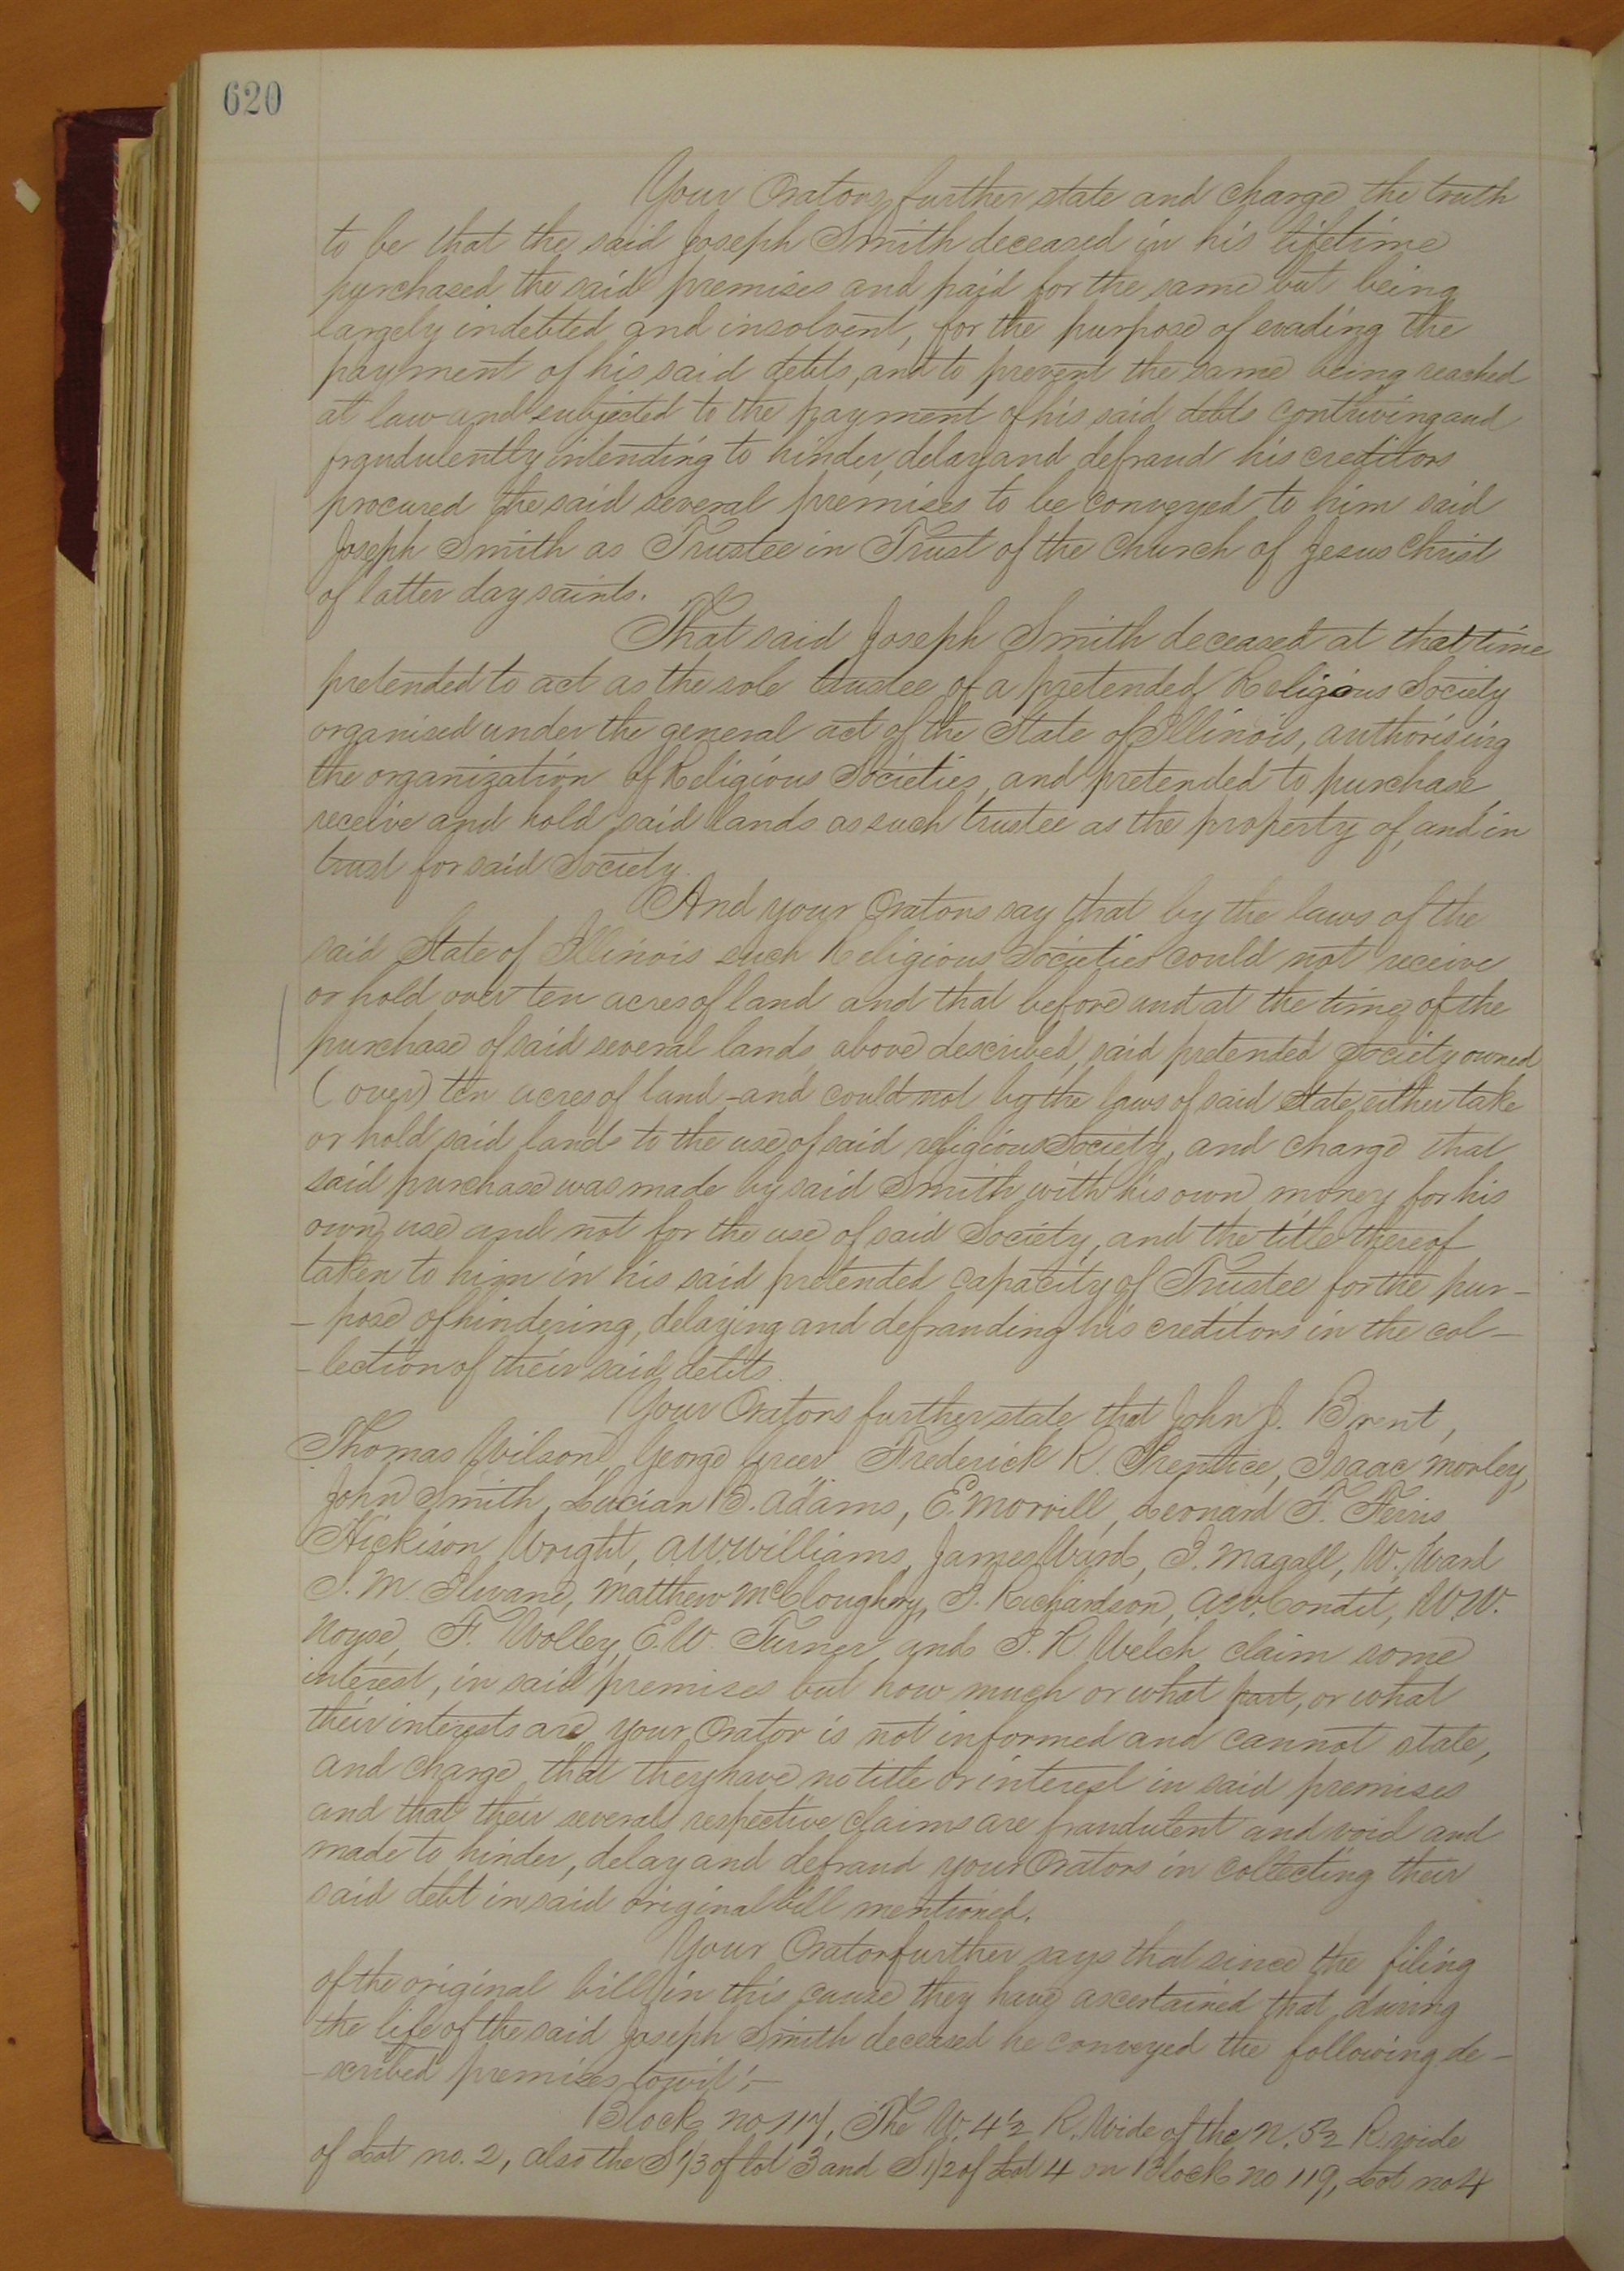 620
Your Orators further state and charge the truth
to be that the said Joseph Smith deceased in his lifetime
purchased the said premises and paid for the same but being
largely indebted and insolvent, for the purpose of evading the
payment of his said debts, and to prevent the same being reached
at law and subjected to the payment of his said debts contriving and
fraudulently intending to hinder, delay and defraud his creditors
procured the said several premises to be conveyed to him said
Joseph Smith as Trustee in Trust of the Church of Jesus Christ
of latter day saints.
That said Joseph Smith deceased at that time
pretended to act as the sole trustee of a pretended Religious Society
organised under the general act of the State of Illinois, authorising
the organization of Religious Societies, and pretended to purchase
receive and hold said lands as such trustee as the property of, and in
trust for said Society.
And your Orators say that by the laws of the
said State of Illinois such Religious Societies could not receive
or hold over ten acres of land and that before and at the time of the
purchase of said several lands above described, said pretended Society owned
(over) ten acres of land - and could not by the laws of said State either take
or hold said lands to the use of said religious Society, and charge that
said purchase was made by said Smith with his own money for his
own use and not for the use of said Society, and the title thereof
taken to him in his said pretended capacity of Trustee for the pur-
-pose of hindering, delaying and defrauding his creditors in the col-
-lection of their said debts.
Your Orators further state that John J. Brent,
Thomas Wilson, George Greer Frederick K. Prentice, Isaac Morley,
John Smith, Lucian B. Adams, E. Morrill, Lernard F. Ferris,
Hickison Wright, A.W. Williams, James Ward, I. Magall, W. Ward
I. M. Ilvane, Matthew McCloughny, I. Richardson, A.W. Condit, W W.
Noyse, F. Wolley, E. W. Turner, and I. R Welch claim some
interest, in said premises but how much or what part, or what
their interests are your Orator is not informed and cannot state,
and charge that they have no title or interest in said premises
and that their several respective claims are fraudulent and void and
made to hinder, delay and defraud your Orators in collecting their
said debt in said original bill mentioned.
Your Orator further says that since the filing
of the original bill in this cause they have ascertained that during
the life of the said Joseph Smith deceased he conveyed the following de-
-scribed premises, towit:-
Block no 117, The W. 4½ R. Wide of the N. 5½ R. wide
of Lot no. 2, also the S 1/3 of lot 3 and S 1/2 of Lot 4 on Block no 119, Lot no 4